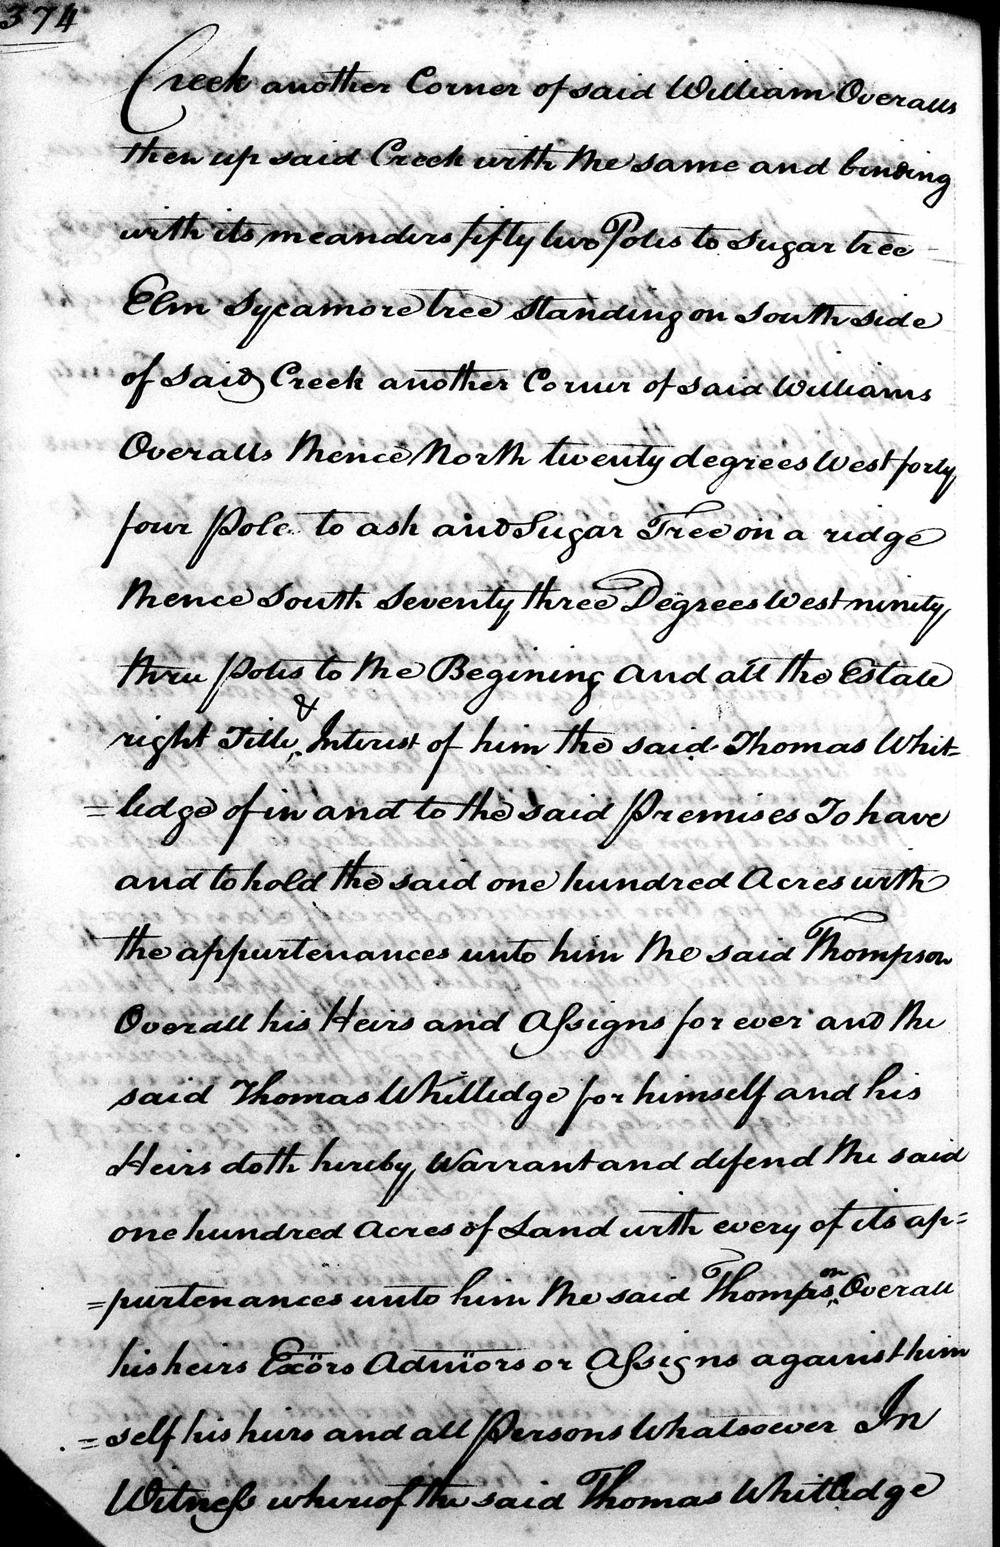 374
Creek another Corner of said William Overalls
then up said Creek with the same and binding
with its meanders fifty two Poles to Sugar tree
Elm Sycamore tree Standing on South side
of said Creek another Corner of said Williams
Overalls thence North twenty degrees West forty
four Pole to ash and Sugar Tree on a ridge
thence South Seventy three Degrees West ninety
three poles to the Begining and all the Estate
right Title & Interest of him the said Thomas Whit=
=ledge of in and to the said Premises To have
and to hold the said one hundred Acres with
the appurtenances unto him the said Thompson
Overall his Heirs and Assigns for ever and the
said Thomas Whitledge for himself and his
Heirs doth hereby Warrant and defend the said
one hundred Acres of Land with every of its ap=
=purtenances unto him the said Thompson Overall
his heirs Exörs Admïors or Assigns against him
=self his heirs and all Persons Whatsoever In
Witness whereof the said Thomas Whitledge